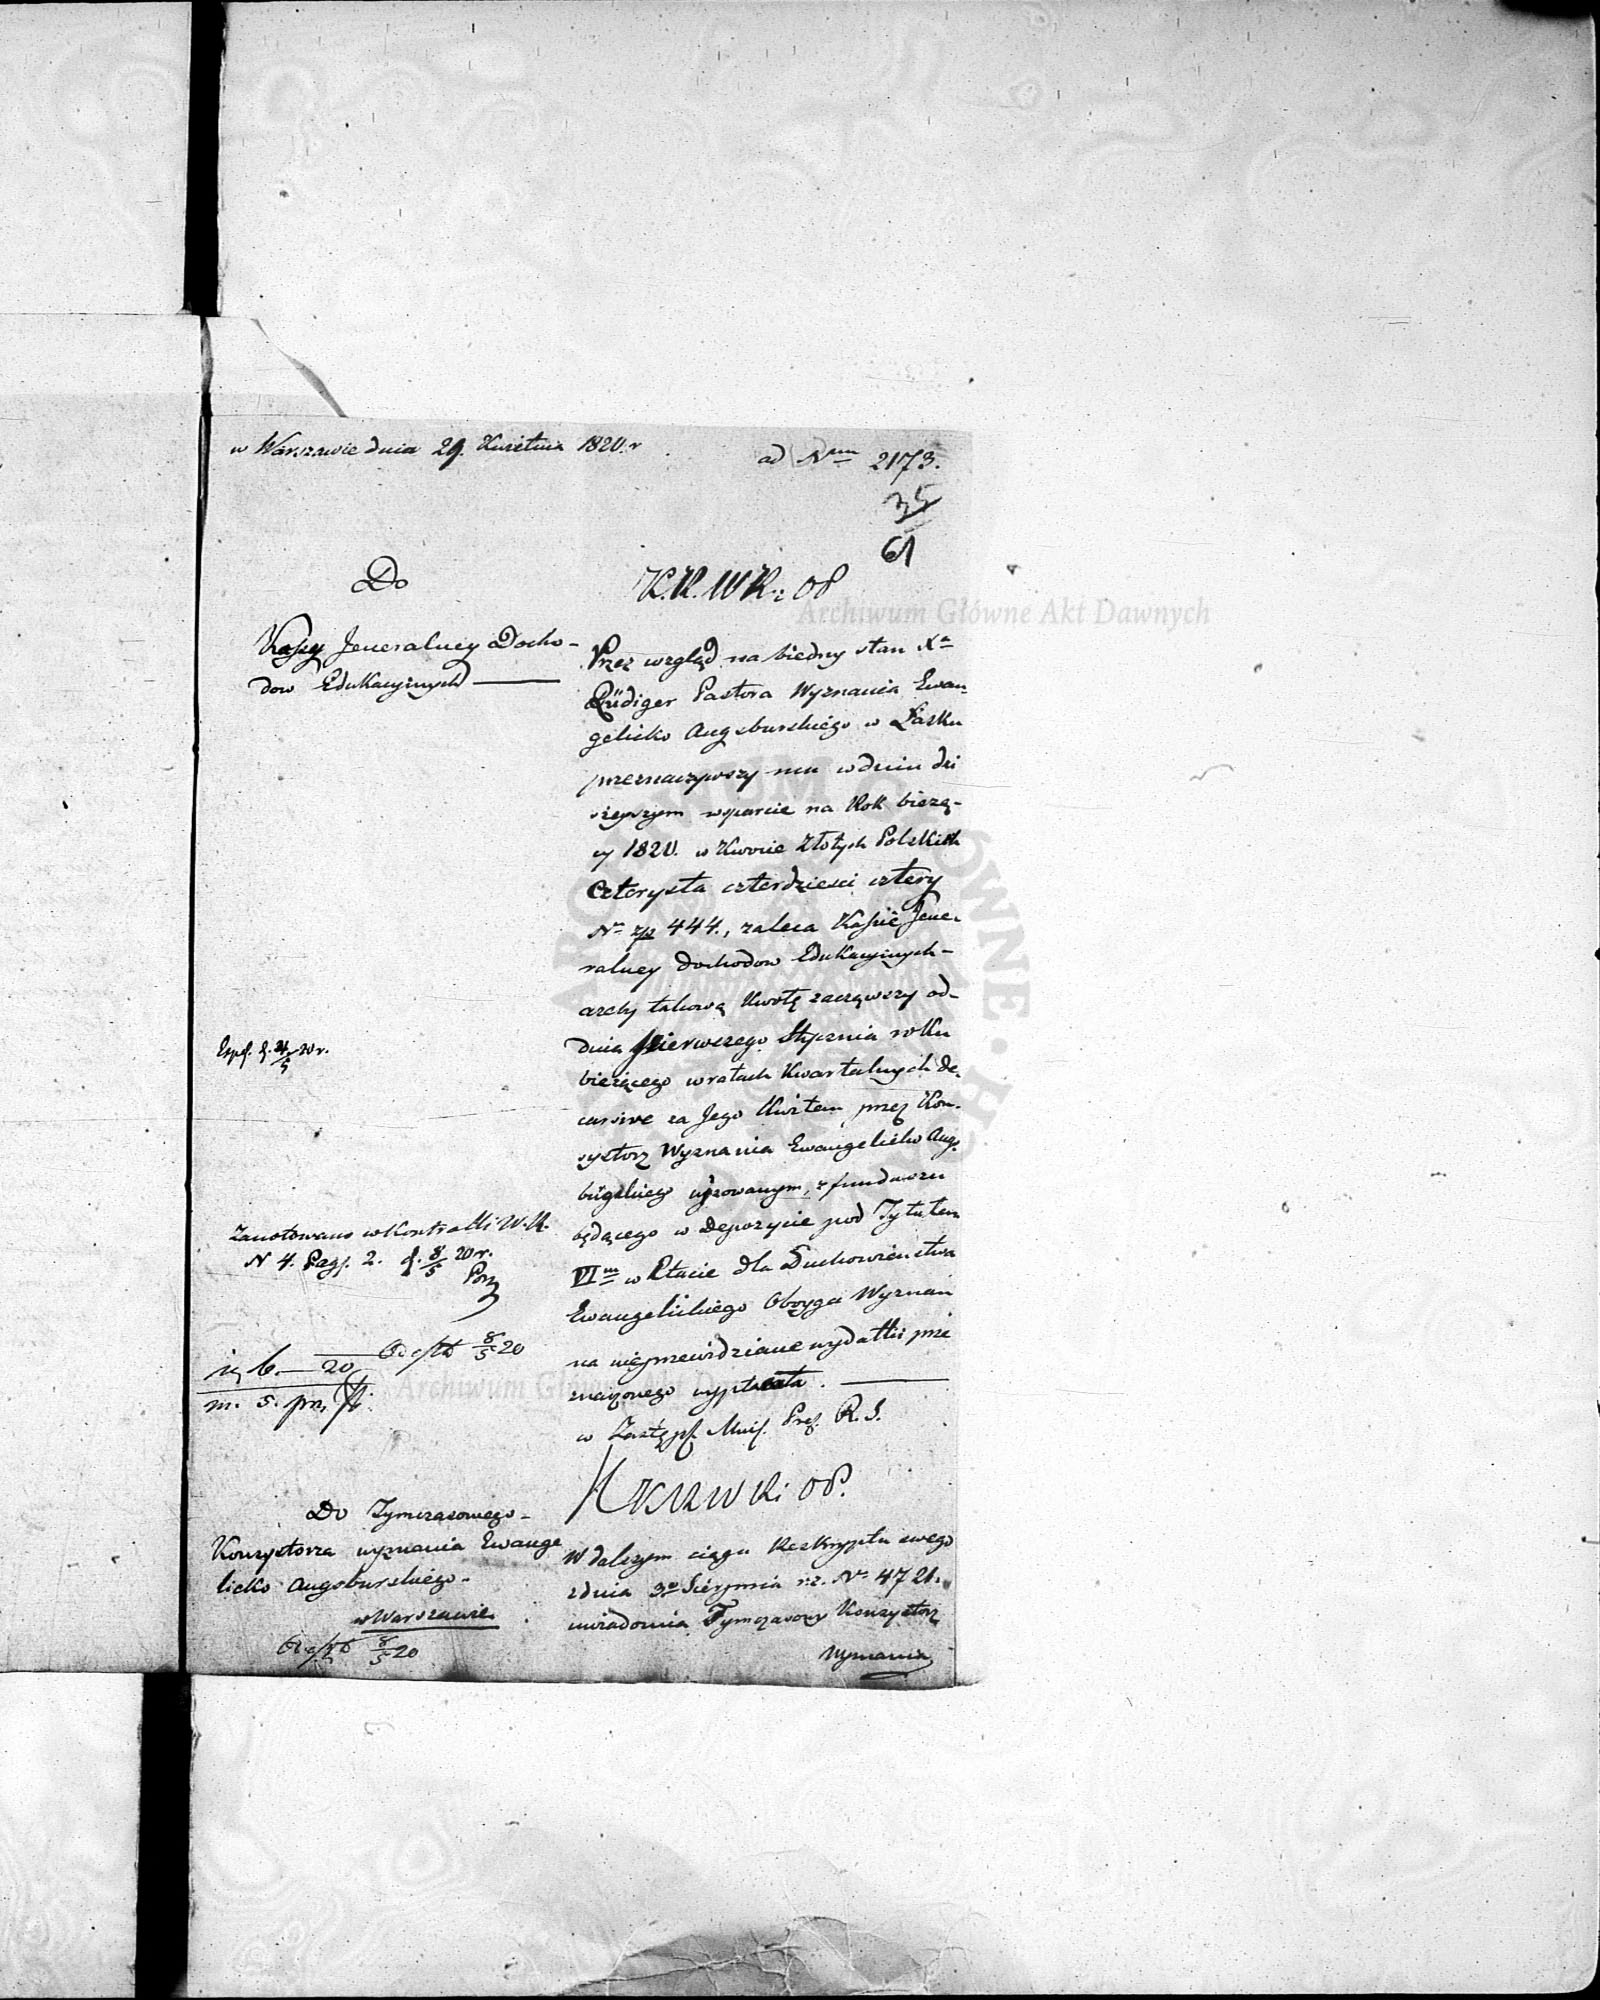 w Warszawie dnia 29. Kwietnia 1820. r
ad Num 2173.
35
61
Do
Kassy Jeneralney Docho-
dow Edukacyinych
K.R.W.R. i O P
Przez wzgląd na biedny stan Xa
Rüdiger Pastora Wyznania Ewan-
gelicko Augsburskiégo w Łasku
przeznaczywszy mu w dniu dzi
sieyszym wsparcie na Rok bieżą-
cy 1820. w Kwocie Złotych Polskich
Czterysta czterdzieści cztery
Nro złp 444., zaleca Kassie Jene-
ralney Dochodow Edukacyinych-
azeby takową Kwotę zacząwszy od-
dnia pierwszego Stycznia roku
bieżącego w ratach Kwartalnych de-
cursive za Jego Kwitem przez Kon-
systorz Wyznania Ewangelicko Augs-
burgskiego wizowanym, z funduszu
będącego w Depozycie pod Tytułem
VIm w Etacie dla Duchowieństwa
Ewangelickiego Oboyga Wyznań
na nieprzewidziane wydatki prze
znaczonego wypłacała.
w Zastęp. Mini. Prez. R. S.
Exp. d. 4/5 20 r.
Zanotowano w Kontrolli W. R.
N 4. Pag. 2. d. 8/5 20 r.
8/5 20
6. — 20
m. 5.
K R W R i O P.
Do Tymczasowego-
Konsystorza wyznania Ewange
licko Augsburskiégo-
w Warszawie
8/5 20
W dalszym ciągu Reskryptu swego
z dnia 3o Sierpnia r. z. No 4721.
uwiadomia Tymczasowy Konsystorz
Wyznania
Archiwum Główne Akt Dawnych
Archiwum Główne Akt Dawnych